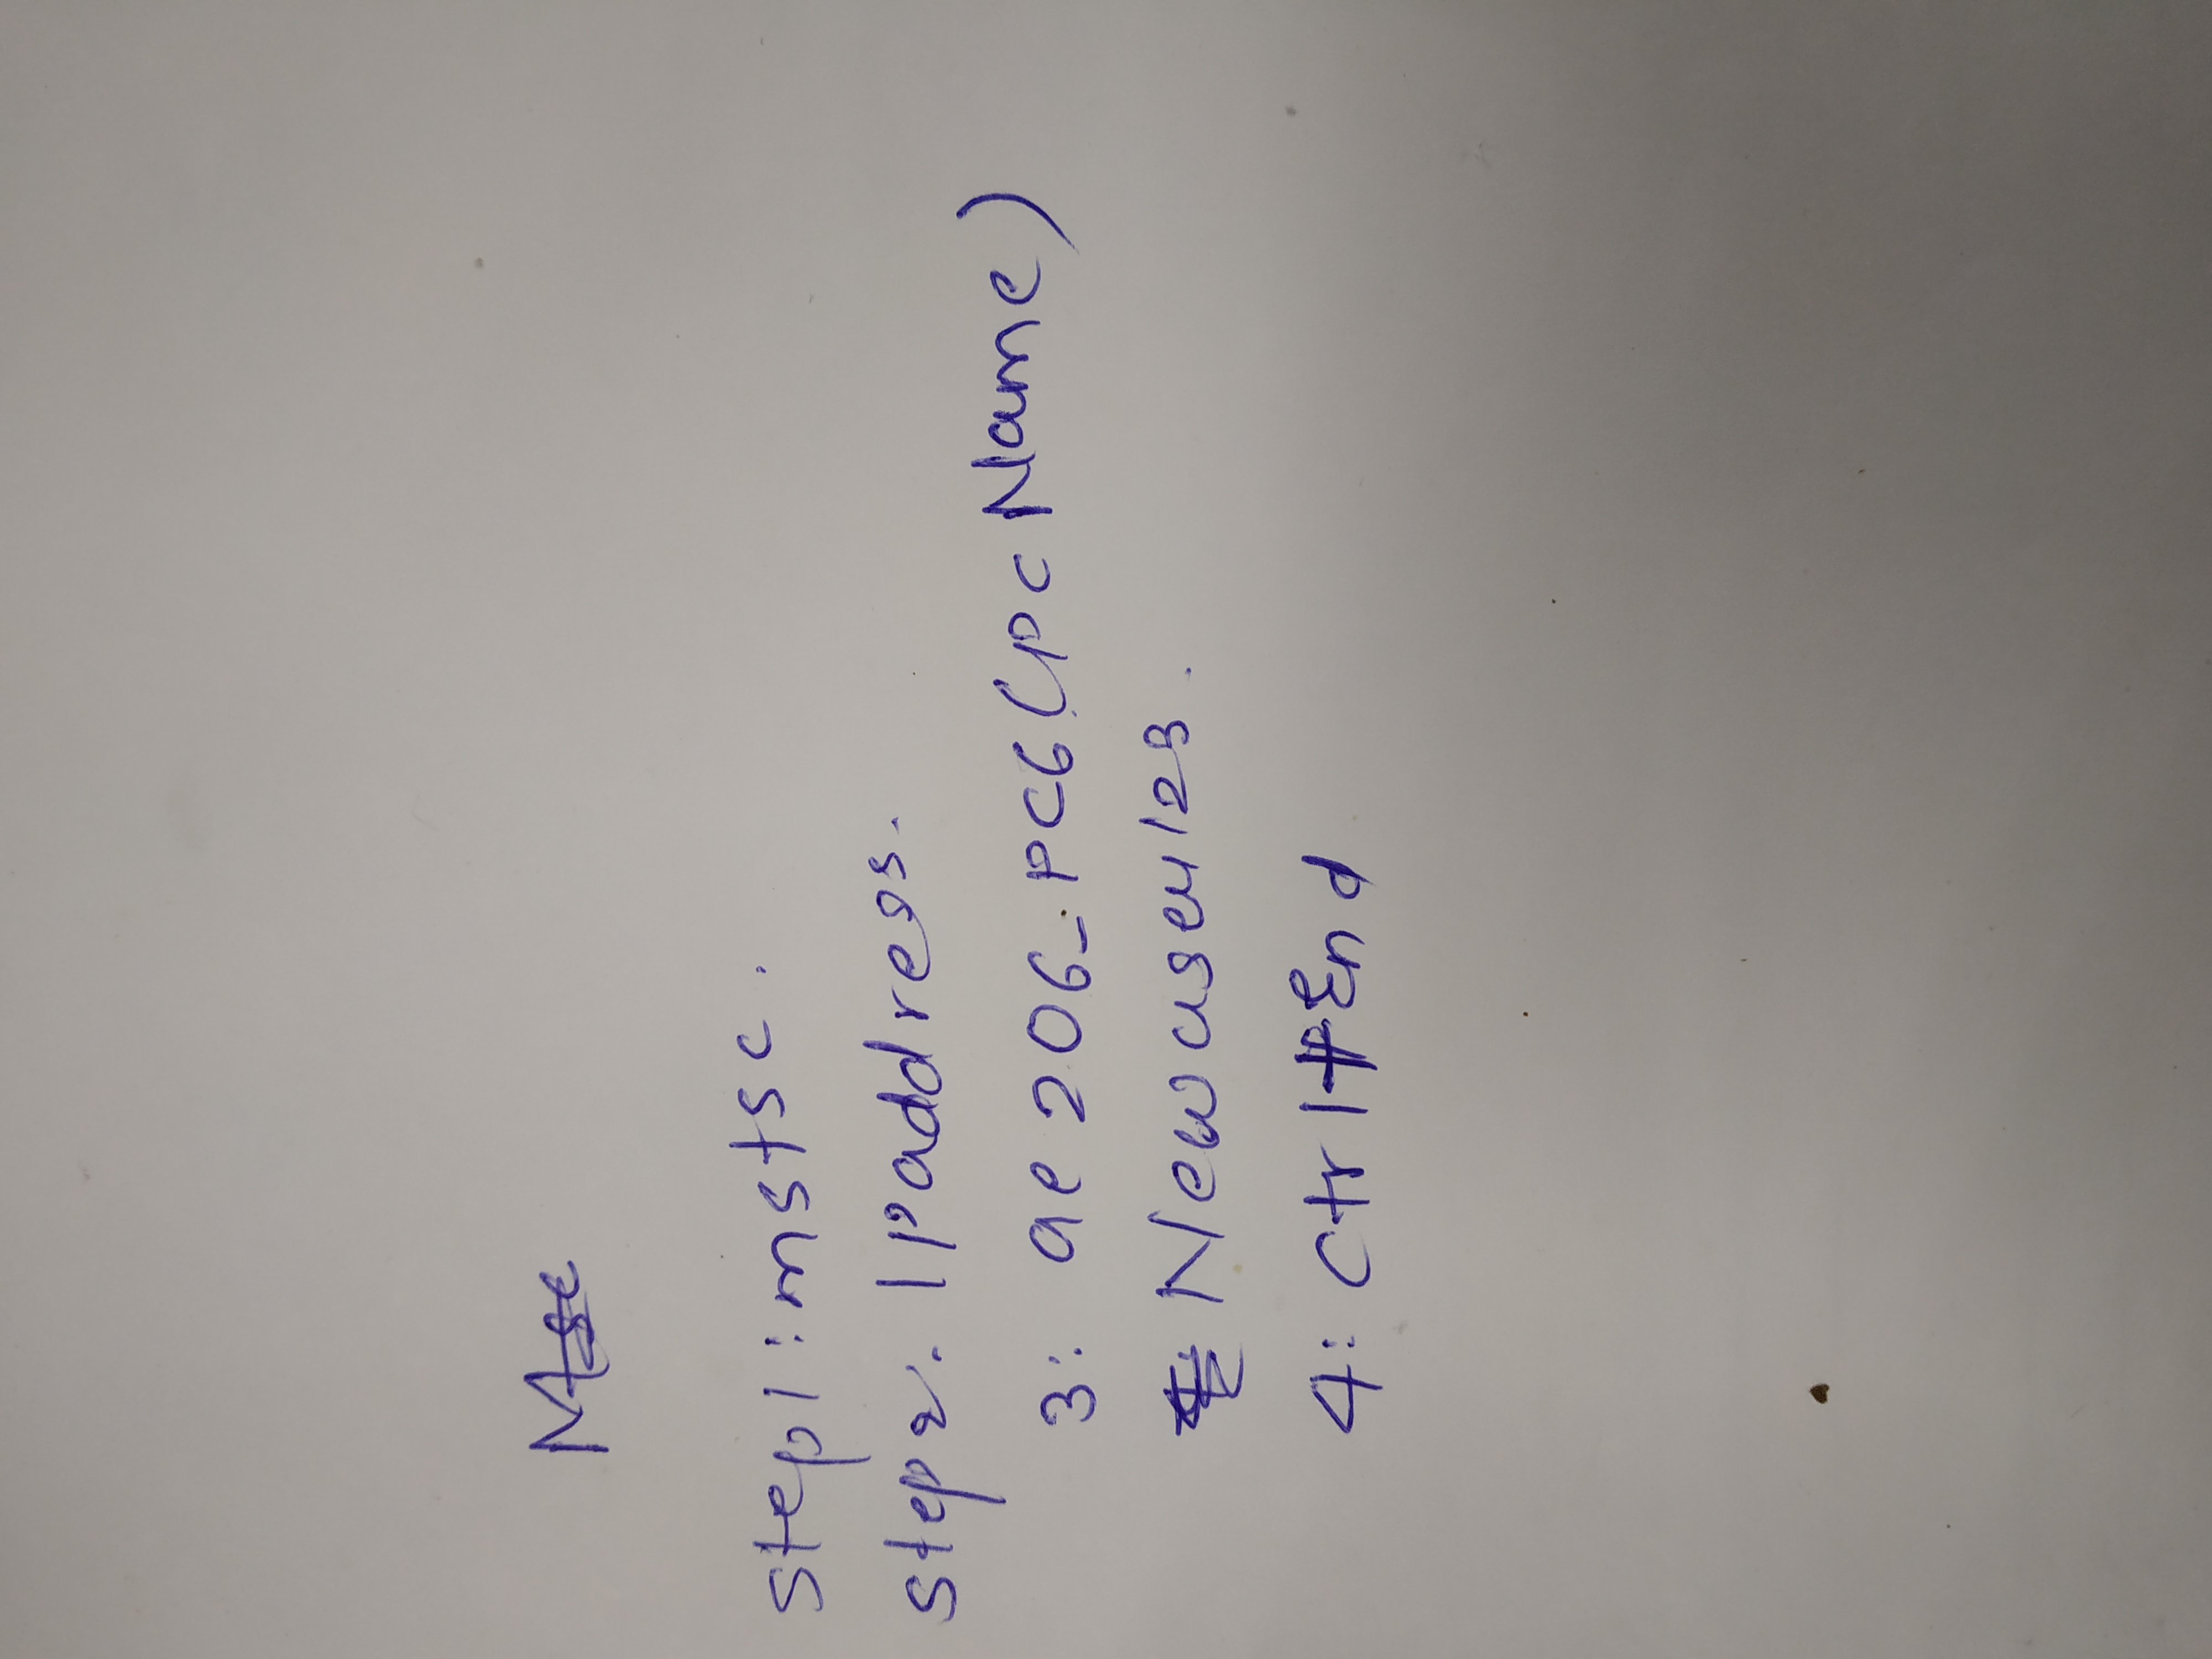 step1: mstsc.
step2. Ipaddress.
3: ae206_PC6 (pc Name)
Newuser123.
4: Ctrl+End